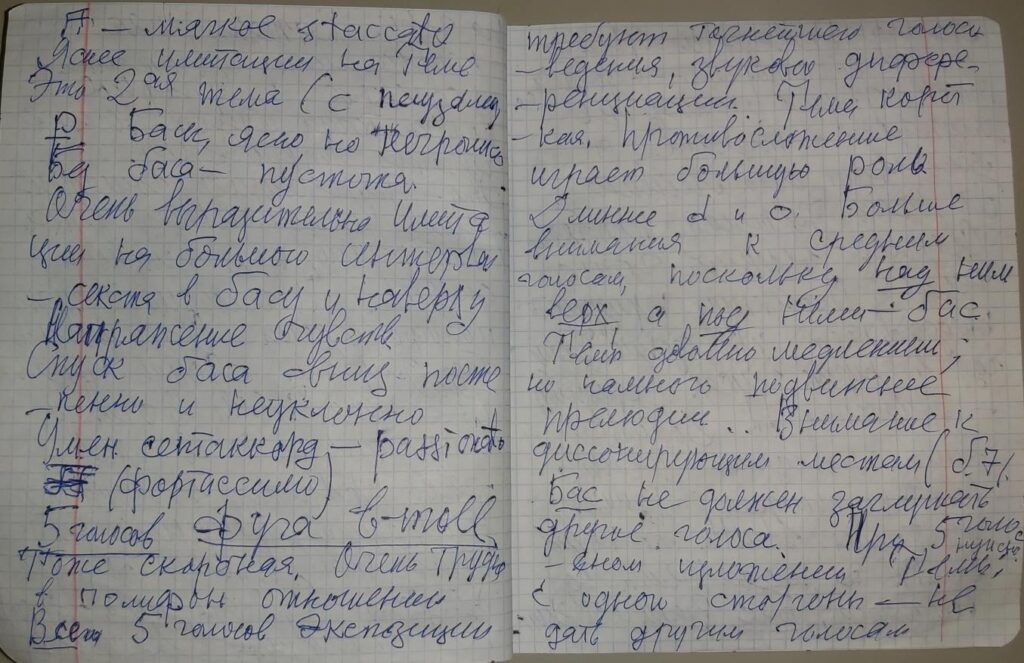 П – мягкое staccato
Яснее имитации на теме
Это 2ая тема (с
p Басы, ясно но негромко
Без баса – пустота.
Очень выразительно имита
ции на большого интервал
– секста в басу и наверху
Напряжение чувств
Спуск баса вниз посте
– пенно и неуклонно
Умен септаккорд –
(фортиссимо)
5 голосов Фуга b-moll
Тоже скорбная. Очень трудн
в полифон отношении
Всего 5 голосов Экспозиции
требуют точнейшего голосо
– ведения, звуковой дифере-
– ренциации. Тема корот
– кая. Противосложение
играет большую роль
Длиннее d и o. Больше
внимания к средним
голосам, поскольку над ними
верх а под ними – бас.
Темп довольно медленный;
но намного подвижнее
прелюдии.. Внимание к
диссонирующим местам (б7).
Бас не должен заглушать
другие голоса. При 5 голос
нужно
– сном изложении темы,
с одной стороны – не
дать другим голосам